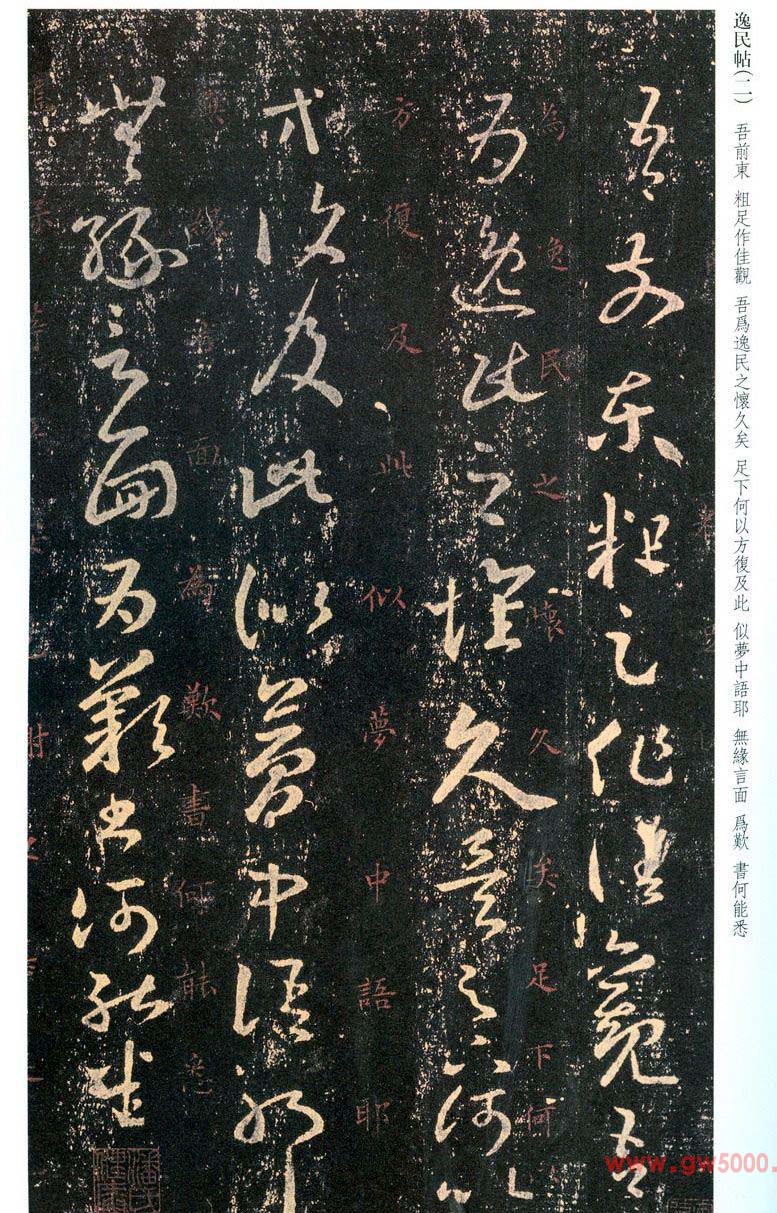 逸民帖(二) 吾前東 粗足作佳觀 吾爲逸民之懷久矣 足下何以方復及此 似夢中語耶 無緣言面 爲歎 書何能悉
吾前東粗足作佳觀吾
為逸民之懷久矣足下何以
為逸民之懷久矣足下何以
方復及此似夢中語耶
方復及此似夢中語耶
無緣言面為歎書何能悉
無緣言面為歎書何能悉
www.gw5000.